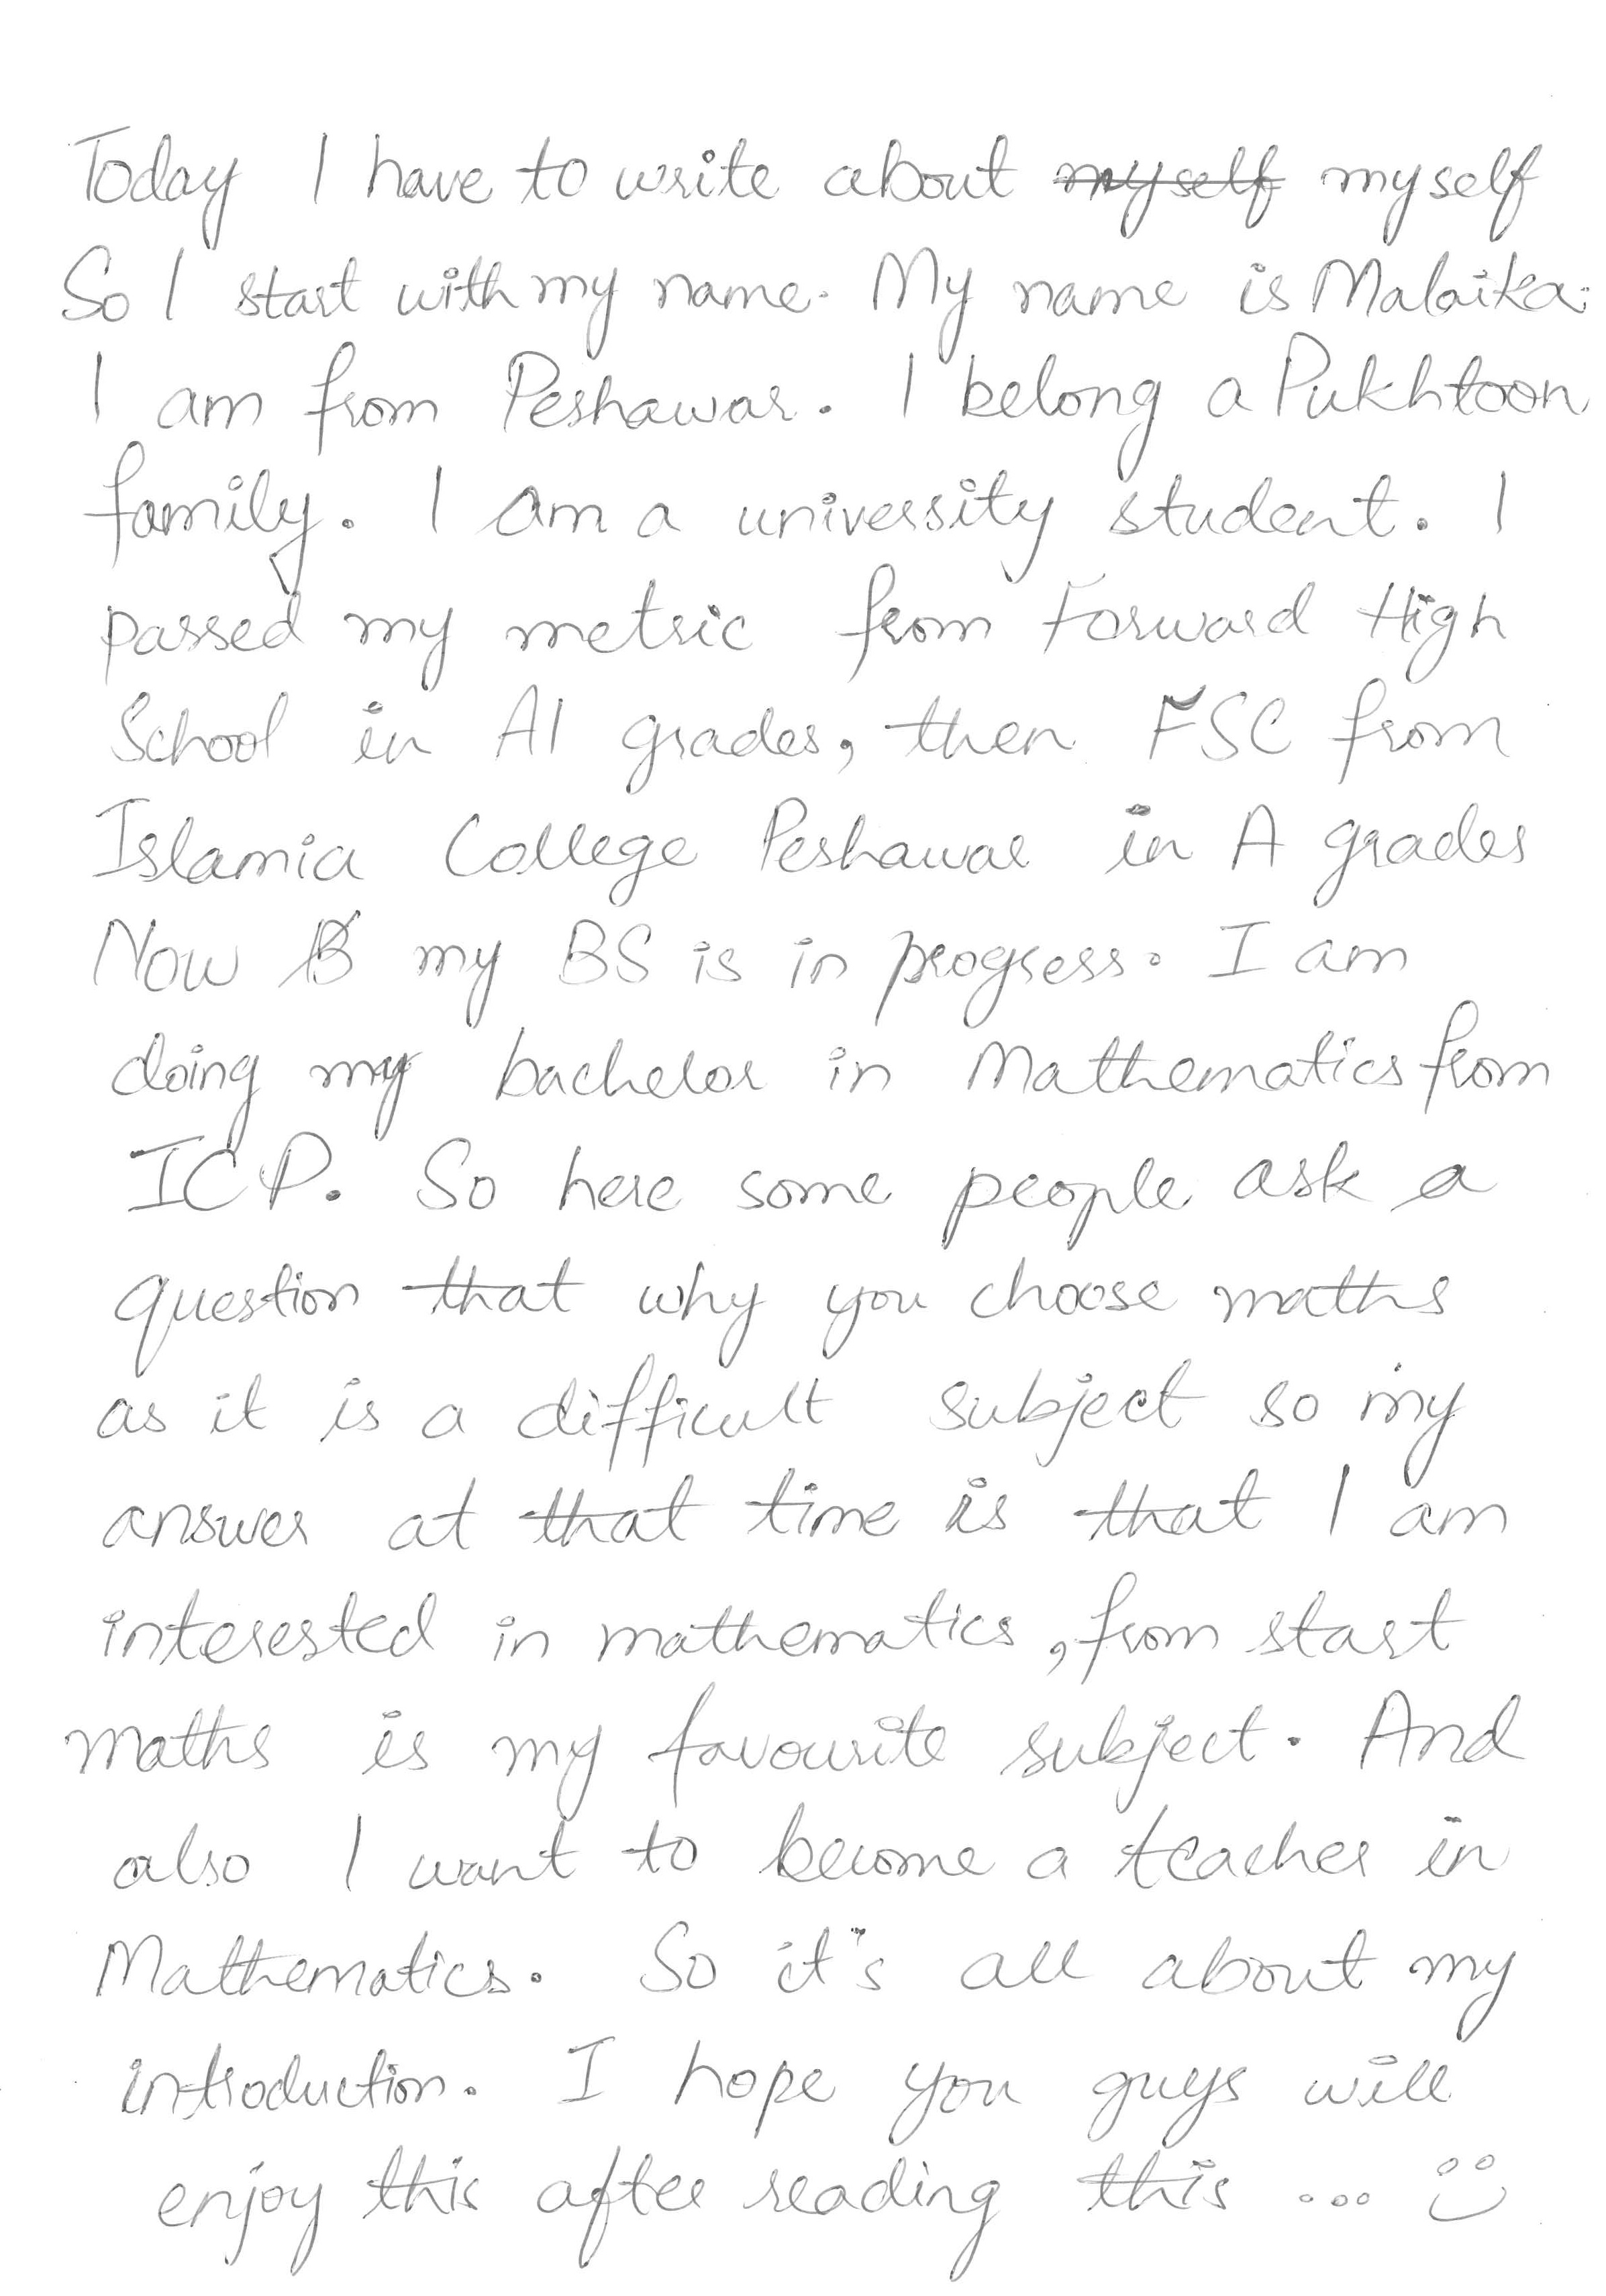 Today I have to write about myself myself
So I start with my name. My name is Malaika.
I am from Peshawar. I belong a Pukhtoon
family. I am a university student. I
passed my metric from Forward High
School in A1 grades, then FSC from
Islamia College Peshawar in A grades
Now B my BS is in progress. I am
doing my bachelor in Mathematics from
ICP. So here some people ask a
question that why you choose maths
as it is a difficult subject so my
answer at that time is that I am
interested in mathematics, from start
maths is my favourite subject. And
also I want to become a teacher in
Mathematics. So it's all about my
introduction. I hope you guys will
enjoy this after reading this ... :)